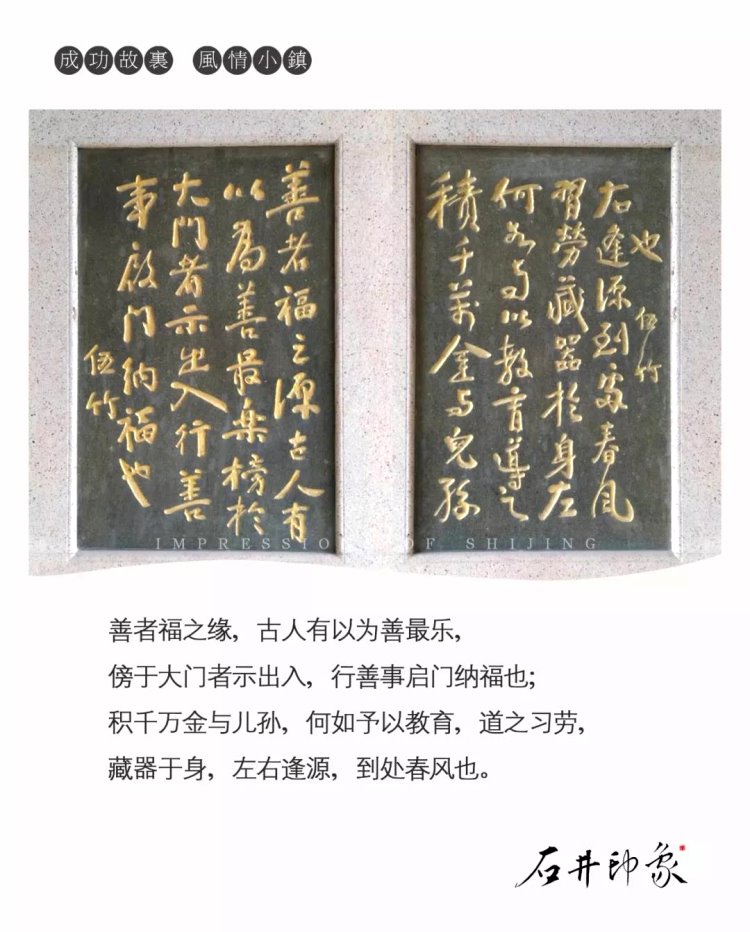 成功故裏 風情小鎮
善者福之源古人有
以為善最樂榜於
大門者示出入行善
事啟門納福也
伍竹
積千萬金与兒孫
何如与以教育導之
習勞藏器於身左
右逢源到處春風
也 伍竹
IMPRESSION OF SHIJING
善者福之缘，古人有以为善最乐，
傍于大门者示出入，行善事启门纳福也；
积千万金与儿孙，何如予以教育，道之习劳，
藏器于身，左右逢源，到处春风也。
石井印象